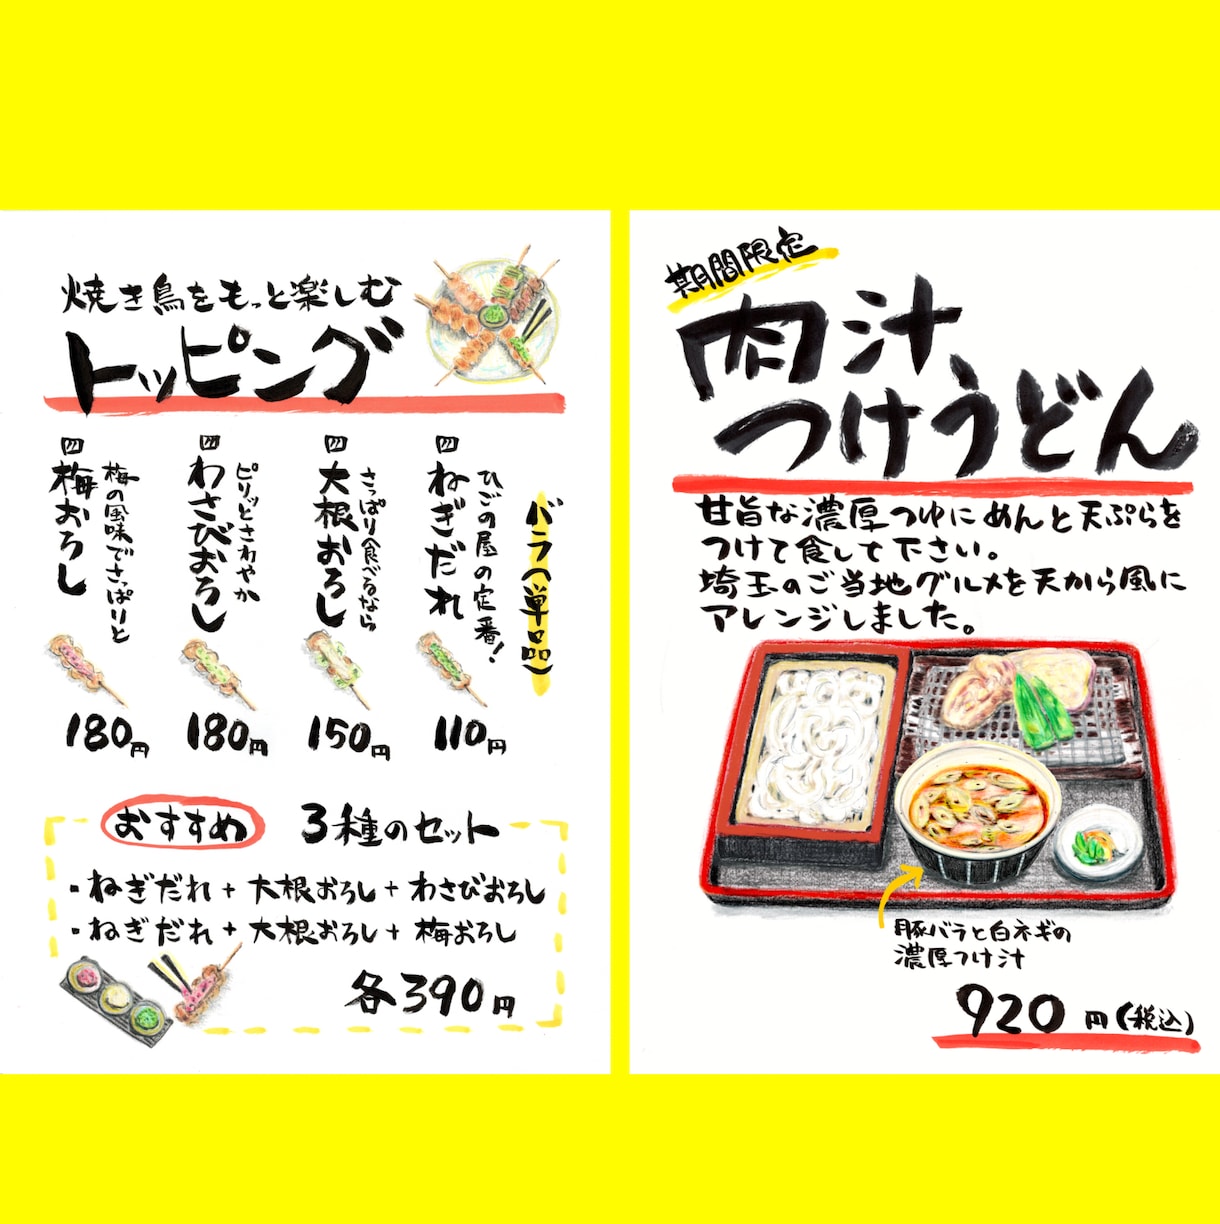 焼き鳥をもっと楽しむ
トッピング
バラ(単品)
ひごの屋の定番!
ねぎだれ
110円
さっぱり食べるなら
大根おろし
150円
ピリッとさわやか
わさびおろし
180円
梅の風味でさっぱりと
梅おろし
180円
おすすめ 3種のセット
・ねぎだれ+大根おろし+わさびおろし
・ねぎだれ+大根おろし+梅おろし
各390円
期間限定
肉汁
つけうどん
甘旨な濃厚つゆにめんと天ぷらを
つけて食して下さい。
埼玉のご当地グルメを天から風に
アレンジしました。
豚バラと白ネギの
濃厚つけ汁
920円(税込)